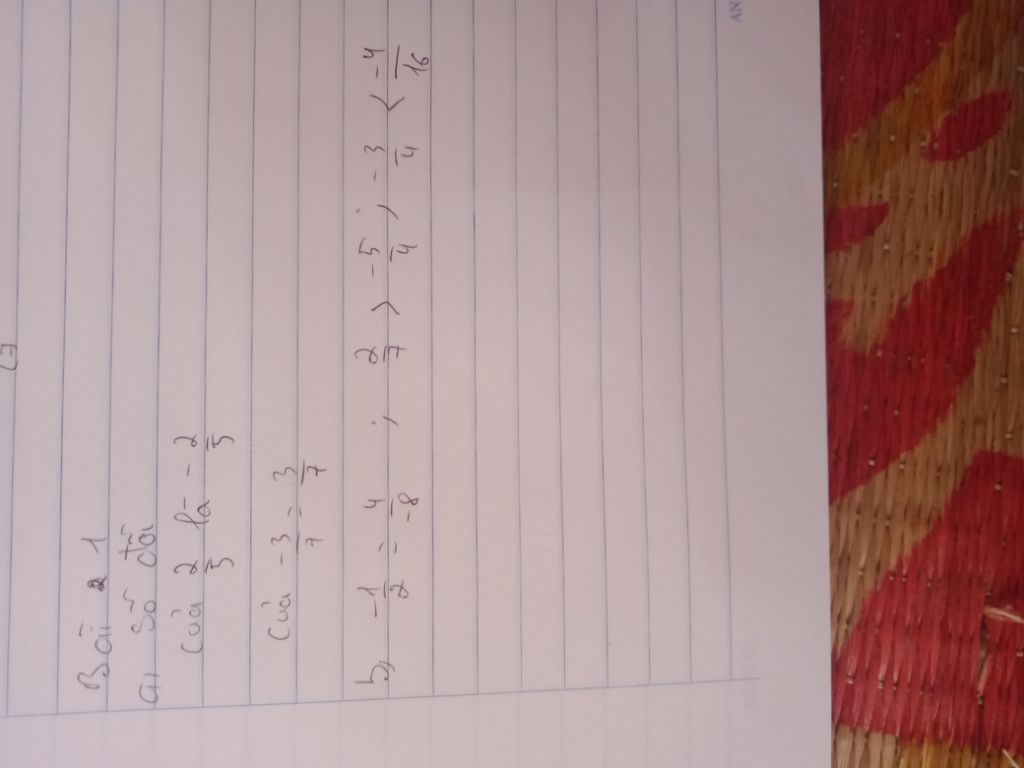 Bài 1
a, Số đối
của 2/5 là -2/5
của -3/7 = 3/7
b, -1/2 = 4/-8 ; 2/7 > -5/4 ; -3/4 < -4/16